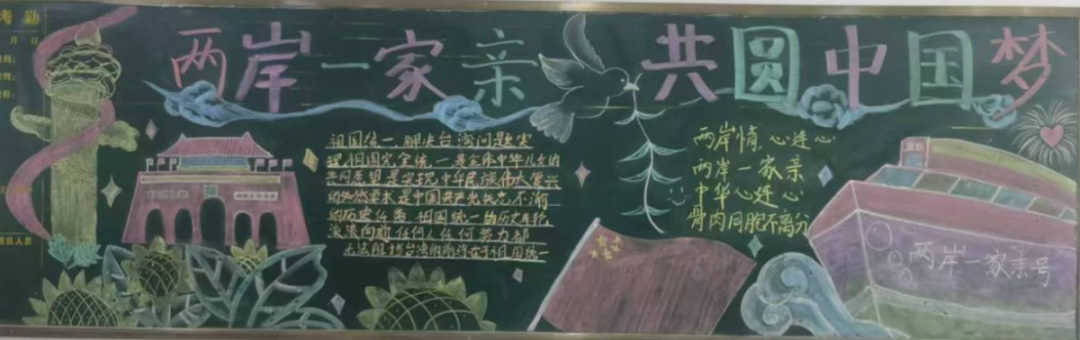 考勤
月 日
两岸一家亲 共圆中国梦
祖国统一,解决台湾问题实
现祖国完全统一是全体中华儿女的
共同愿望是实现中华民族伟大复兴
的必然要求是中国共产党矢志不渝
的历史任务 祖国统一的历史车轮
滚滚向前任何人任何势力都
无法阻挡
祖国统一
两岸情,心连心
两岸一家亲
中华心连心
骨肉同胞不离分
两岸一家亲号
值日人员